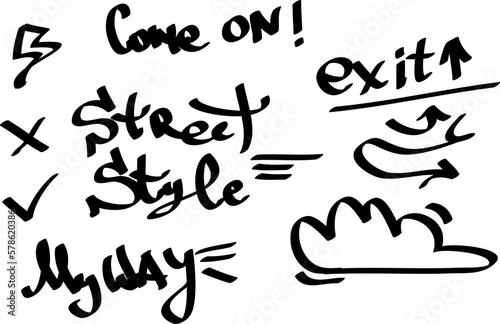 Come ON!
exit
Street
Style
My WAY
Adobe Stock
578620386